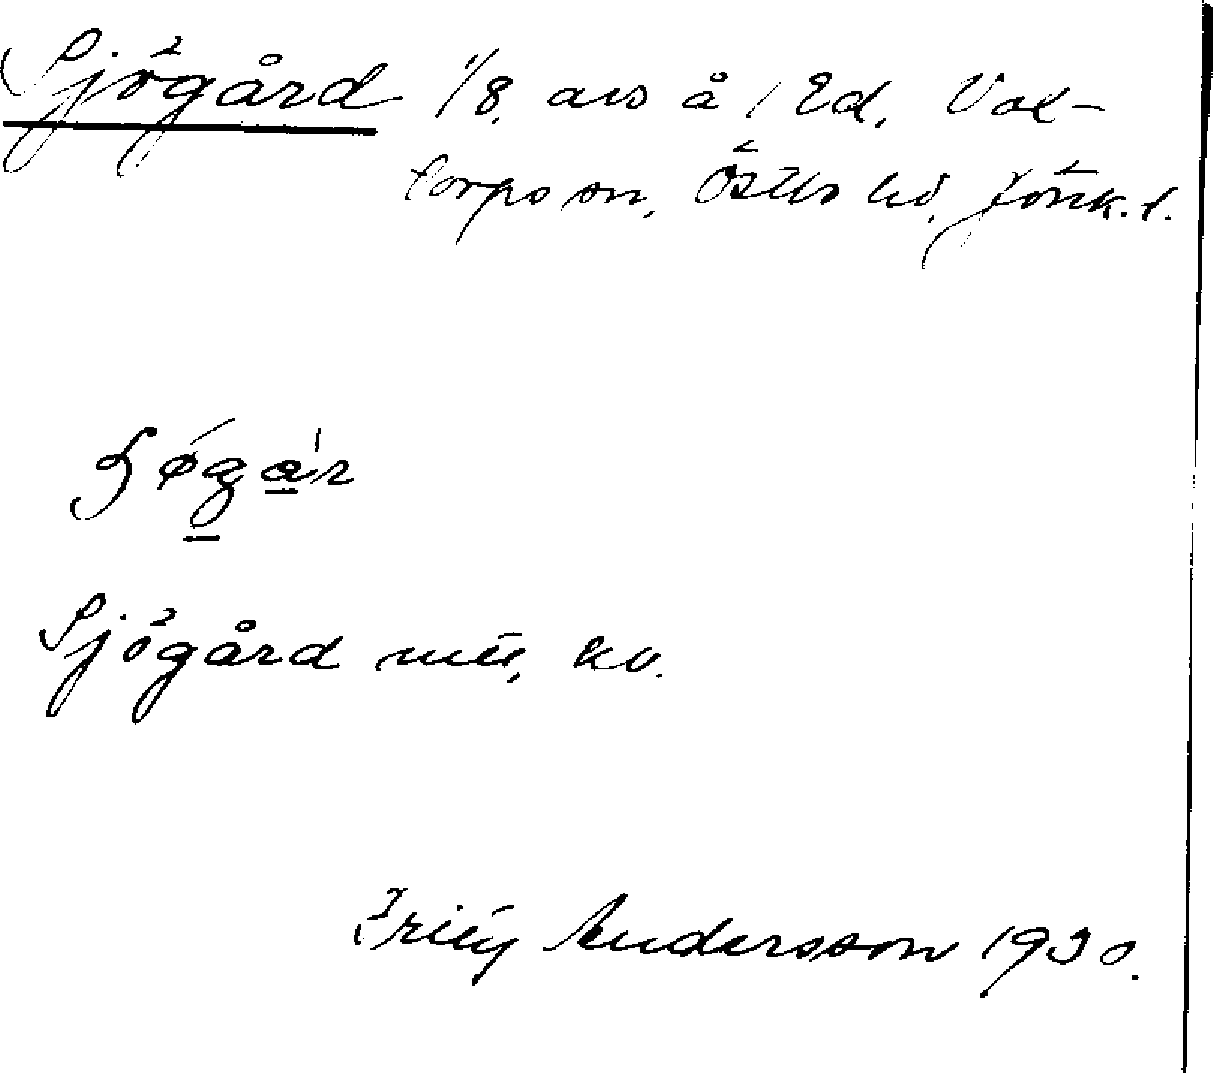 Sjögård 1/8 avs å 1 Ed, Val-
torps sn, Östbo hd, Jönk. l.
Sjögård mtl, kv.
Fritz Andersson 1930.